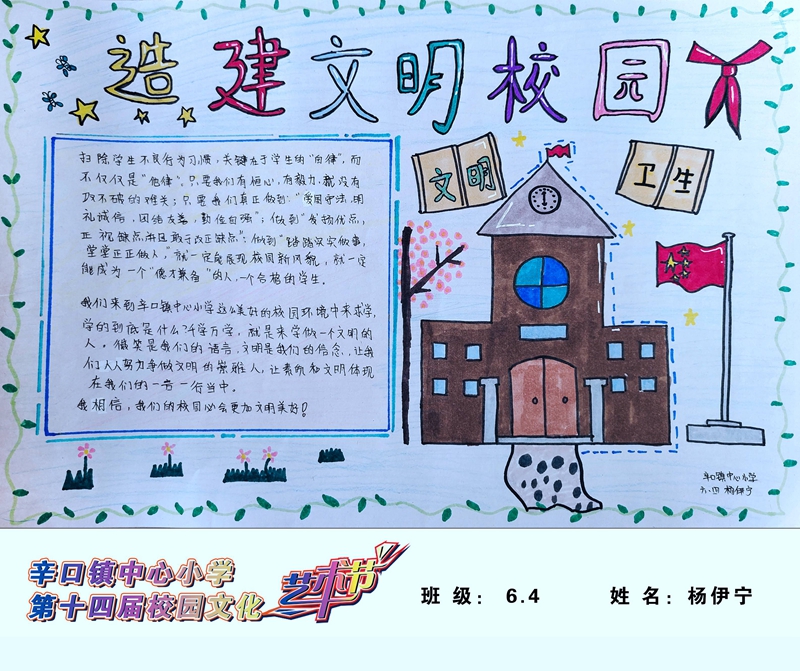 造建文明校园
文明
卫生
扫除学生不良行为习惯,关键在于学生的"自律",而
不仅仅是"他律"。只要我们有恒心,有毅力,就没有
攻不破的难关;只要我们真正做到:"爱国守法,明
礼诚信,团结友善,勤俭自强";做到"发扬优点,
正视缺点并且敢于改正缺点";做到"踏踏实实做事,
堂堂正正做人",就一定能展现校园新风貌,就一定
能成为一个"德才兼备"的人,一个合格的学生。
我们来到辛口镇中心小学这么美好的校园环境中来求学,
学的到底是什么?千学万学,就是来学做一个文明的
人。微笑是我们的语言,文明是我们的信念,让我
们人人努力争做文明的常雅人,让素质和文明体现
在我们的一言一行当中。
我相信,我们的校园必会更加文明美好!
辛口镇中心小学
六.四 杨伊宁
辛口镇中心小学
第十四届校园文化 艺术节
班 级: 6.4 姓 名: 杨伊宁